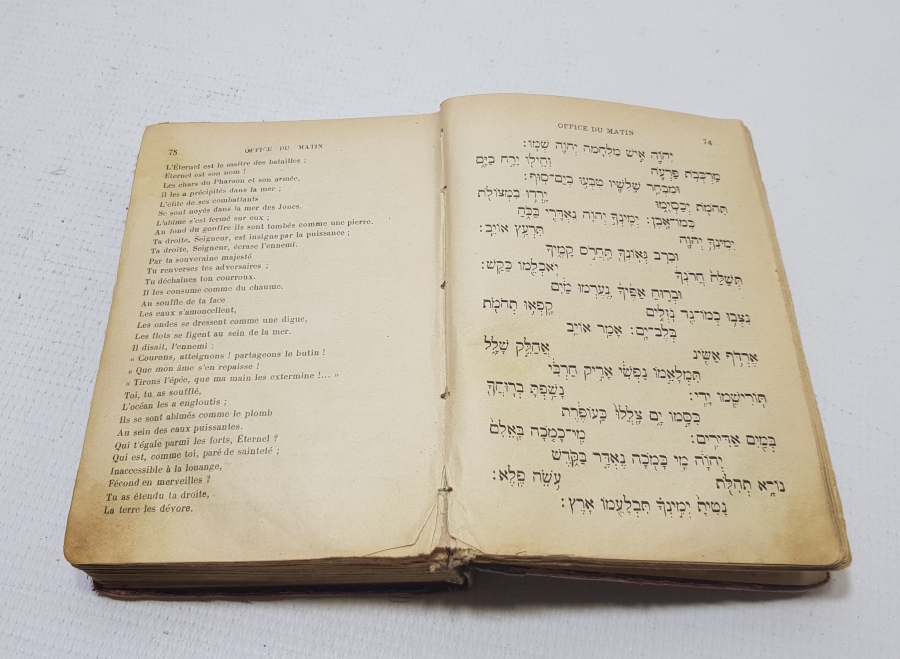 OFFICE DU MATIN 74
יְהֹוָה אִישׁ מִלְחָמָה יְהוָה שְׁמוֹ:
מַרְכְּבֹת פַּרְעֹה וְחֵילוֹ יָרָה בַיָּם
וּמִבְחַר שָׁלִשָׁיו טֻבְּעוּ בְיַם־סוּף:
תְּהֹמֹת יְכַסְיֻמוּ יָרְדוּ בִמְצוֹלֹת
כְּמוֹ־אָבֶן: יְמִינְךָ יְהוָה נֶאְדָּרִי בַּכֹּחַ
יְמִינְךָ יְהוָה תִּרְעַץ אוֹיֵב:
וּבְרֹב גְּאוֹנְךָ תַּהֲרֹס קָמֶיךָ
תְּשַׁלַּח חֲרֹנְךָ יֹאכְלֵמוֹ כַּקַּשׁ:
וּבְרוּחַ אַפֶּיךָ נֶעֶרְמוּ מַיִם
נִצְּבוּ כְמוֹ־נֵד נֹזְלִים קָפְאוּ תְהֹמֹת
בְּלֶב־יָם: אָמַר אוֹיֵב
אֶרְדֹּף אַשִּׂיג אֲחַלֵּק שָׁלָל
תִּמְלָאֵמוֹ נַפְשִׁי אָרִיק חַרְבִּי
תּוֹרִישֵׁמוֹ יָדִי: נָשַׁפְתָּ בְרוּחֲךָ
כִּסָּמוֹ יָם צָלֲלוּ כַּעוֹפֶרֶת
בְּמַיִם אַדִּירִים: מִי־כָמֹכָה בָּאֵלִם
יְהוָה מִי כָּמֹכָה נֶאְדָּר בַּקֹּדֶשׁ
נוֹרָא תְהִלֹּת עֹשֵׂה פֶלֶא:
נָטִיתָ יְמִינְךָ תִּבְלָעֵמוֹ אָרֶץ:
75 OFFICE DU MATIN
L'Éternel est le maître des batailles ;
Éternel est son nom !
Les chars du Pharaon et son armée,
Il les a précipités dans la mer ;
L'élite de ses combattants
Se sont noyés dans la mer des Joncs.
L'abîme s'est fermé sur eux ;
Au fond du gouffre ils sont tombés comme une pierre.
Ta droite, Seigneur, est insigne par la puissance ;
Ta droite, Seigneur, écrase l'ennemi.
Par ta souveraine majesté
Tu renverses tes adversaires ;
Tu déchaînes ton courroux.
Il les consume comme du chaume.
Au souffle de ta face
Les eaux s'amoncellent,
Les ondes se dressent comme une digue,
Les flots se figent au sein de la mer.
Il disait, l'ennemi :
« Courons, atteignons ! partageons le butin !
« Que mon âme s'en repaisse !
« Tirons l'épée, que ma main les extermine !... »
Toi, tu as soufflé,
L'océan les a engloutis ;
Ils se sont abîmés comme le plomb
Au sein des eaux puissantes.
Qui t'égale parmi les forts, Éternel ?
Qui est, comme toi, paré de sainteté ;
Inaccessible à la louange,
Fécond en merveilles ?
Tu as étendu ta droite,
La terre les dévore.